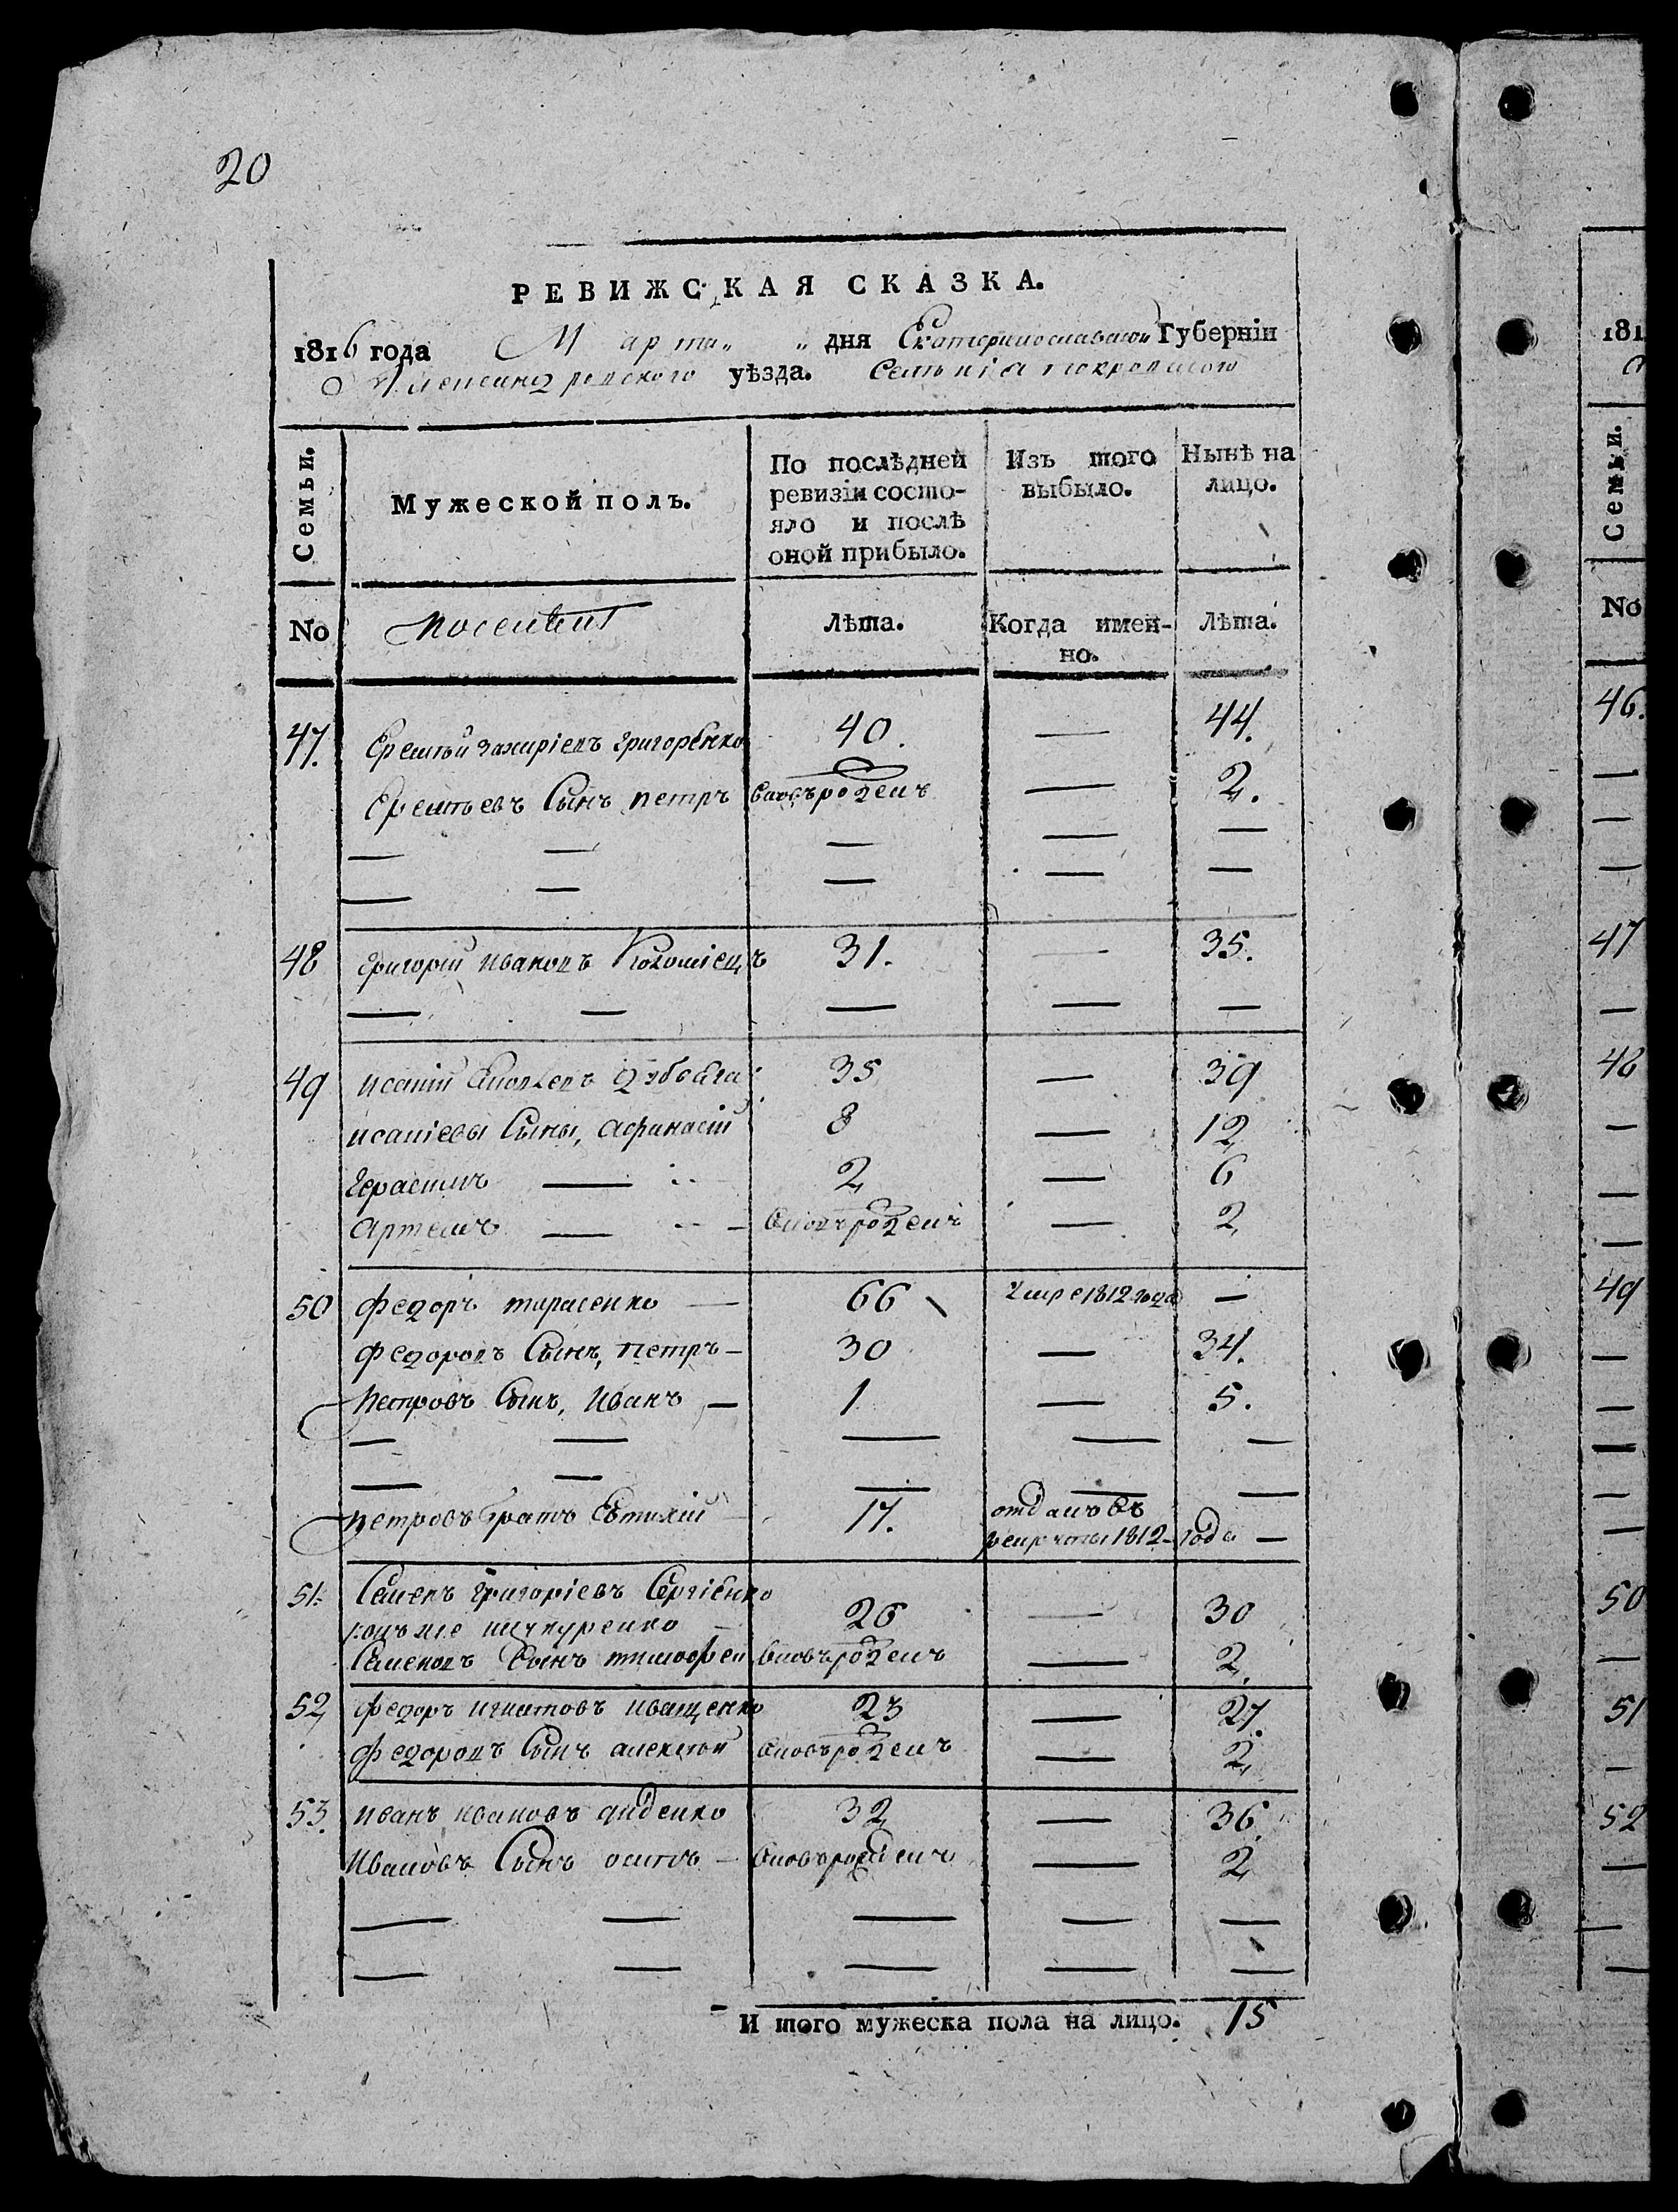 20
РЕВИЖСКАЯ СКАЗКА.
1816 года Марта „ „ дня Екатеринославской Губерніи
Александровского уѣзда. Селенія Покровского
Семьи.
Мужеской полъ.
По послѣдней
ревизіи состо-
яло и послѣ
оной прибыло.
Изъ того
выбыло.
Ныне на
лицо.
No
Лѣта.
Когда имен-
но.
Лѣта.
47. Еремѣй Захаріевъ Григоренко 40. — 44.
Еремѣевъ Сынъ петръ вновьрожденъ — 2.
— — — — —
— — — — —
48 Григорій Ивановъ Коломіецъ 31. — 35.
— — — — —
49 исаий 35 — 39
исаіевы Сыны, Афанасій 8 — 12
Герасимъ — 2 — 6
Артемъ — вновьрожденъ — 2
50 Федоръ тарасенко — 66 умре 1812 года —
Федоровъ Сынъ, петръ — 30 — 34.
Петровъ Сынъ, Иванъ — 1 — 5.
— — — — —
— — — — —
петровъ братъ Евтихій 17. отданъ въ
рекруты 1812 года —
51. Семенъ Григоріевъ Сергіенко
онъ же 26 — 30
Семеновъ Сынъ тимофей вновьрожденъ — 2.
52 Федоръ игнатовъ иващенко 23 — 27.
Федоровъ Сынъ алексѣй вновьрожденъ — 2
53. иванъ ивановъ диденко 32 — 36
Ивановъ Сынъ осипъ — вновьрожденъ — 2
— — — — —
— — — — —
И того мужеска пола на лицо. 15
181
Семьи.
No
46.
—
—
—
47
—
48
—
—
—
49
—
—
—
—
—
50
—
51
—
52
—
—
—